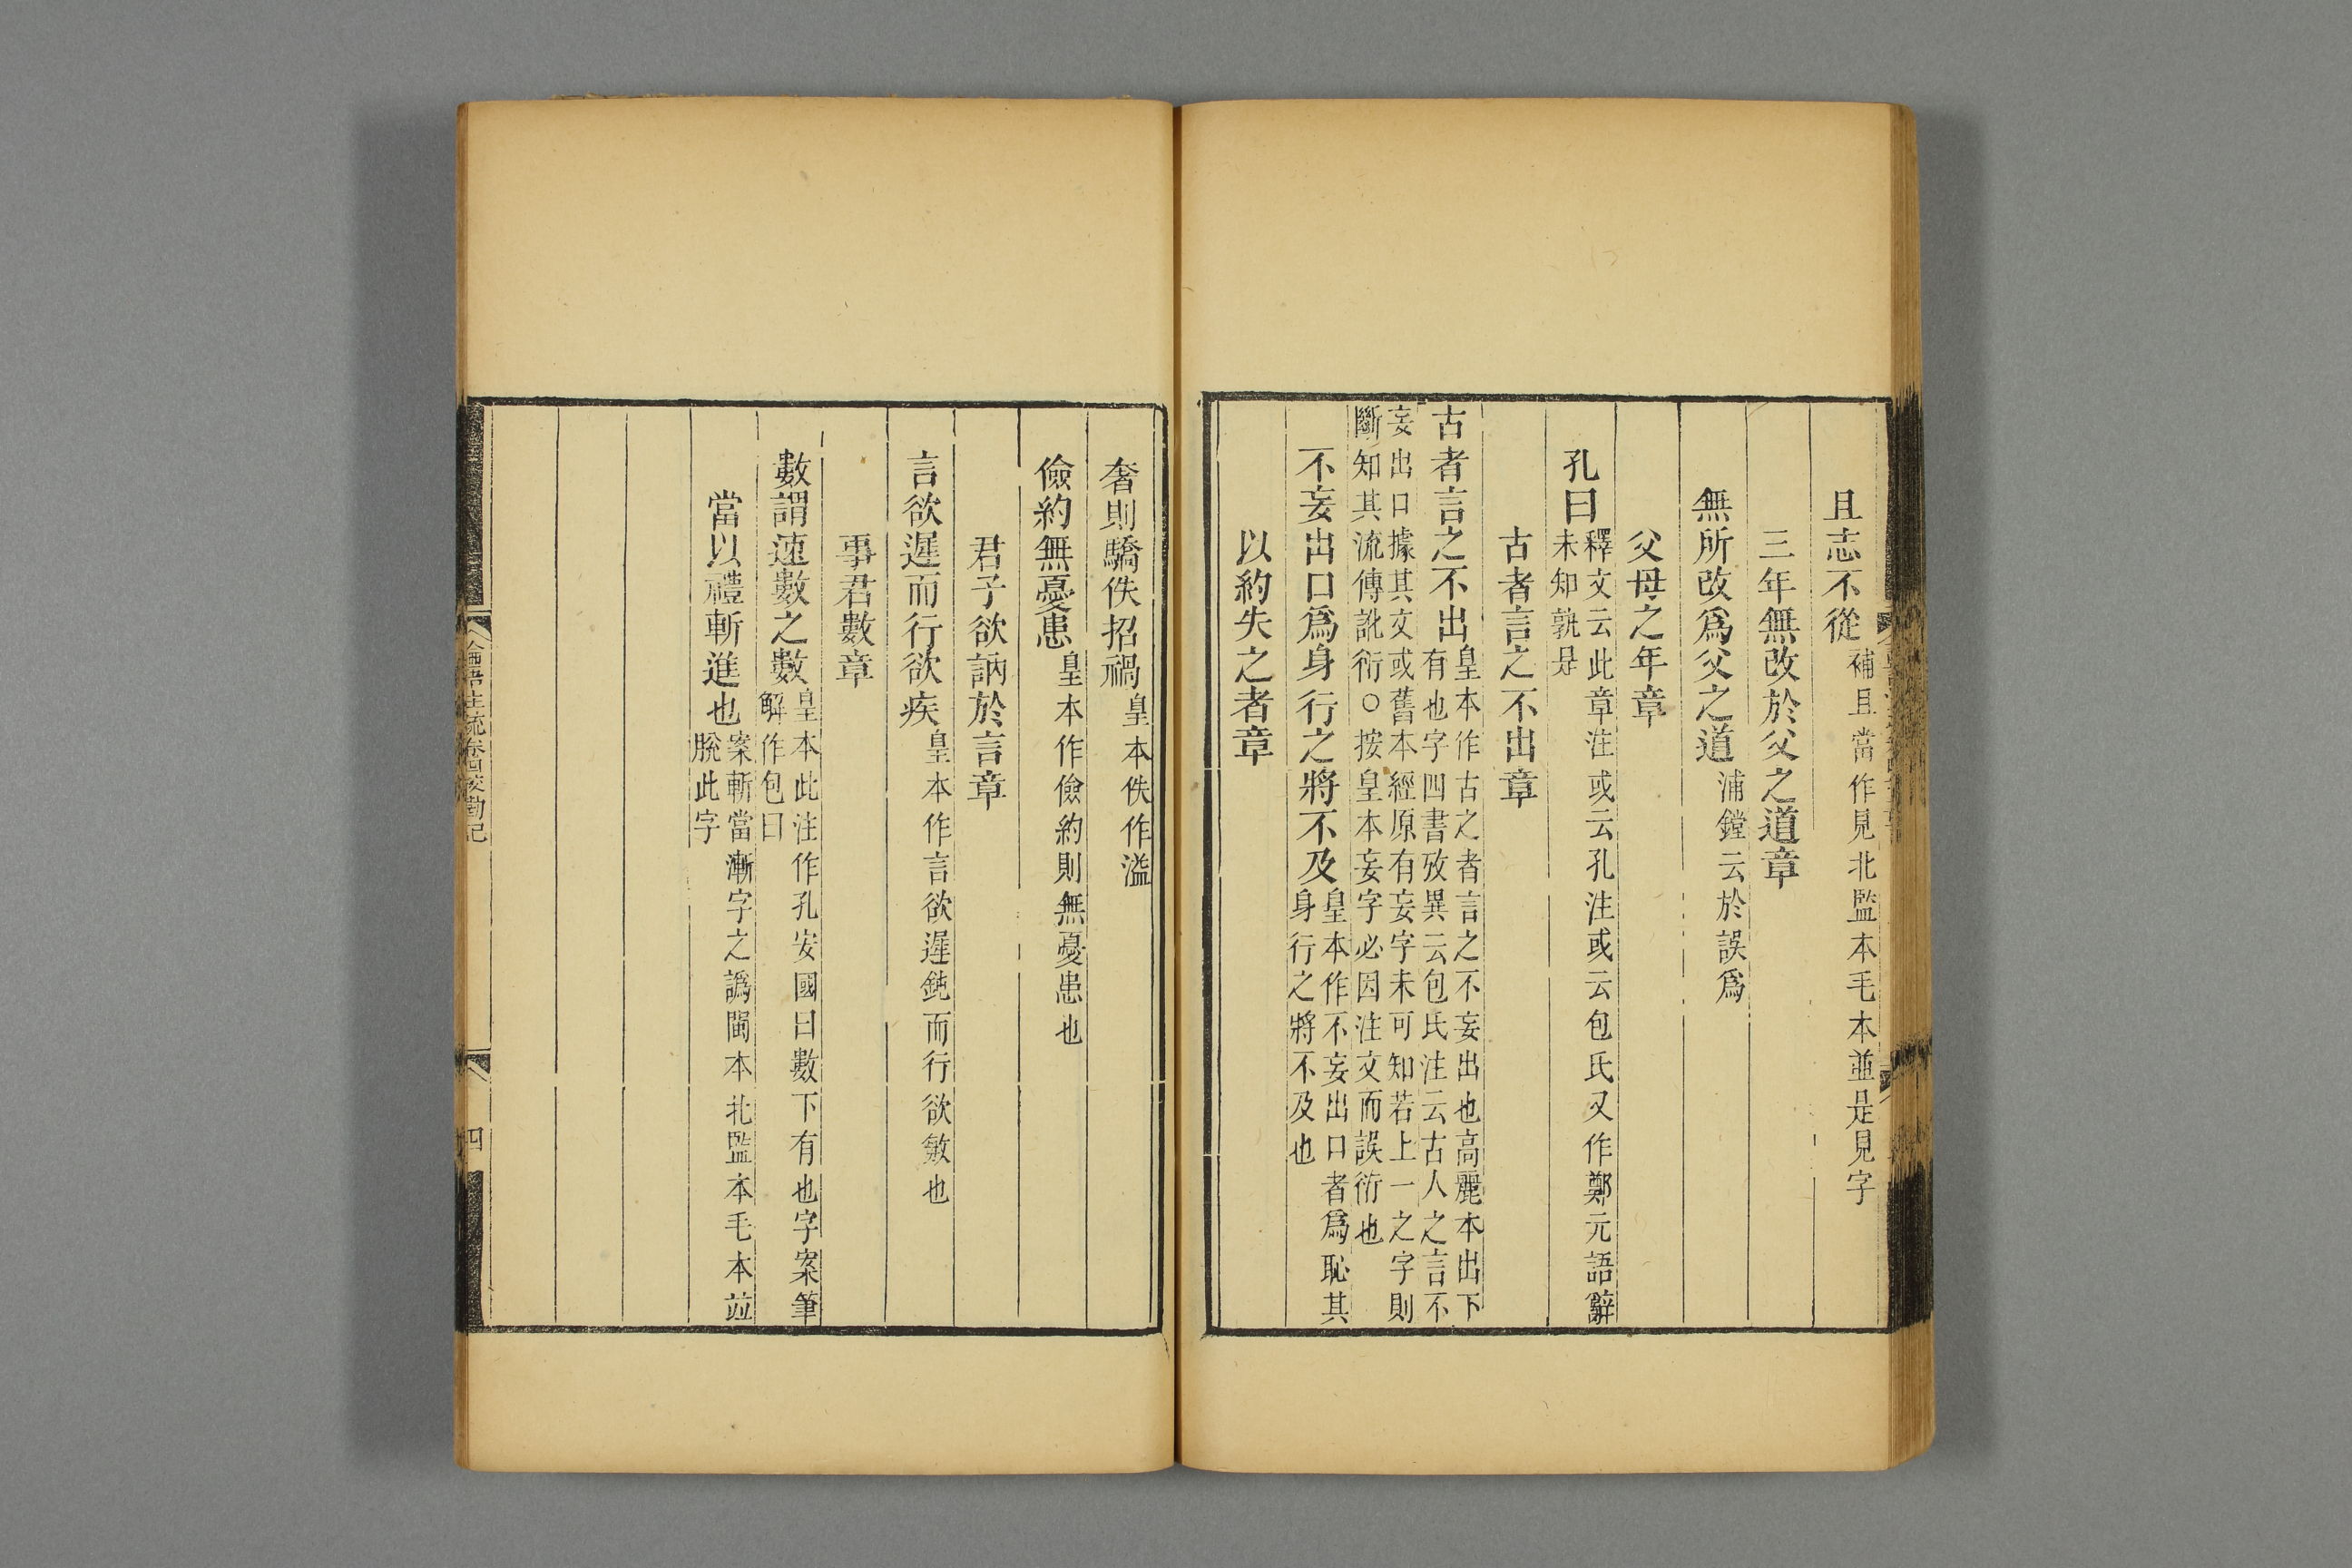 且志不從補且當作見北監本毛本並是見字
三年無改於父之道章
無所改爲父之道浦鏜云於誤爲
父母之年章
孔曰釋文云此章注或云孔注或云包氏又作鄭元語辭
未知孰是
古者言之不出章
古者言之不出皇本作古之者言之不妄出也高麗本出下
有也字四書攷異云包氏注云古人之言不
妄出口據其文或舊本經原有妄字未可知若上一之字則
斷知其流傳訛衍○按皇本妄字必因注文而誤衍也
不妄出口爲身行之將不及皇本作不妄出口者爲恥其
身行之將不及也
以約失之者章
奢則驕佚招禍皇本佚作溢
儉約無憂患皇本作儉約則無憂患也
君子欲訥於言章
言欲遲而行欲疾皇本作言欲遲鈍而行欲敏也
事君數章
數謂速數之數皇本此注作孔安國曰數下有也字案筆
解作包曰
當以禮斬進也案斬當漸字之譌閩本北監本毛本並
脫此字
論語注疏卷四校勘記
四